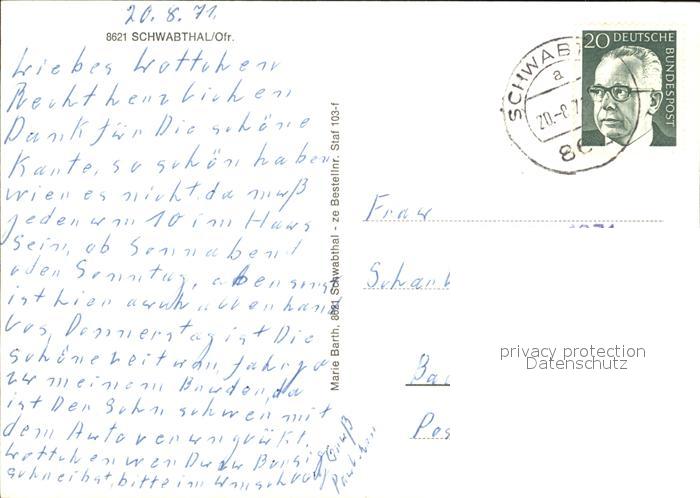 20.8.71.
8621 SCHWABTHAL/Ofr.
Liebes Lottchen
Recht herzlichen
Dank für Die schöne
Karte, so schön haben
wir es nicht, da muß
jeder um 10 im Haus
sein, ob Sonnabend
oder Sonntag, aber sonst
ist hier auch allerhand
los, Donnerstag ist Die
schöne Zeit um, fahr ja
zu meinem Bruder, da
ist Der Sohn schwer mit
dem Auto verunglückt.
Lottchen wen Du
schreibst, bitte im Umschlag
Gruß
Marie Barth, 8621 Schwabthal - ze Bestellnr. Staf 103-f
SCHWABT
a
20.-8.7
86
20 DEUTSCHE
BUNDESPOST
Frau
privacy protection
Datenschutz